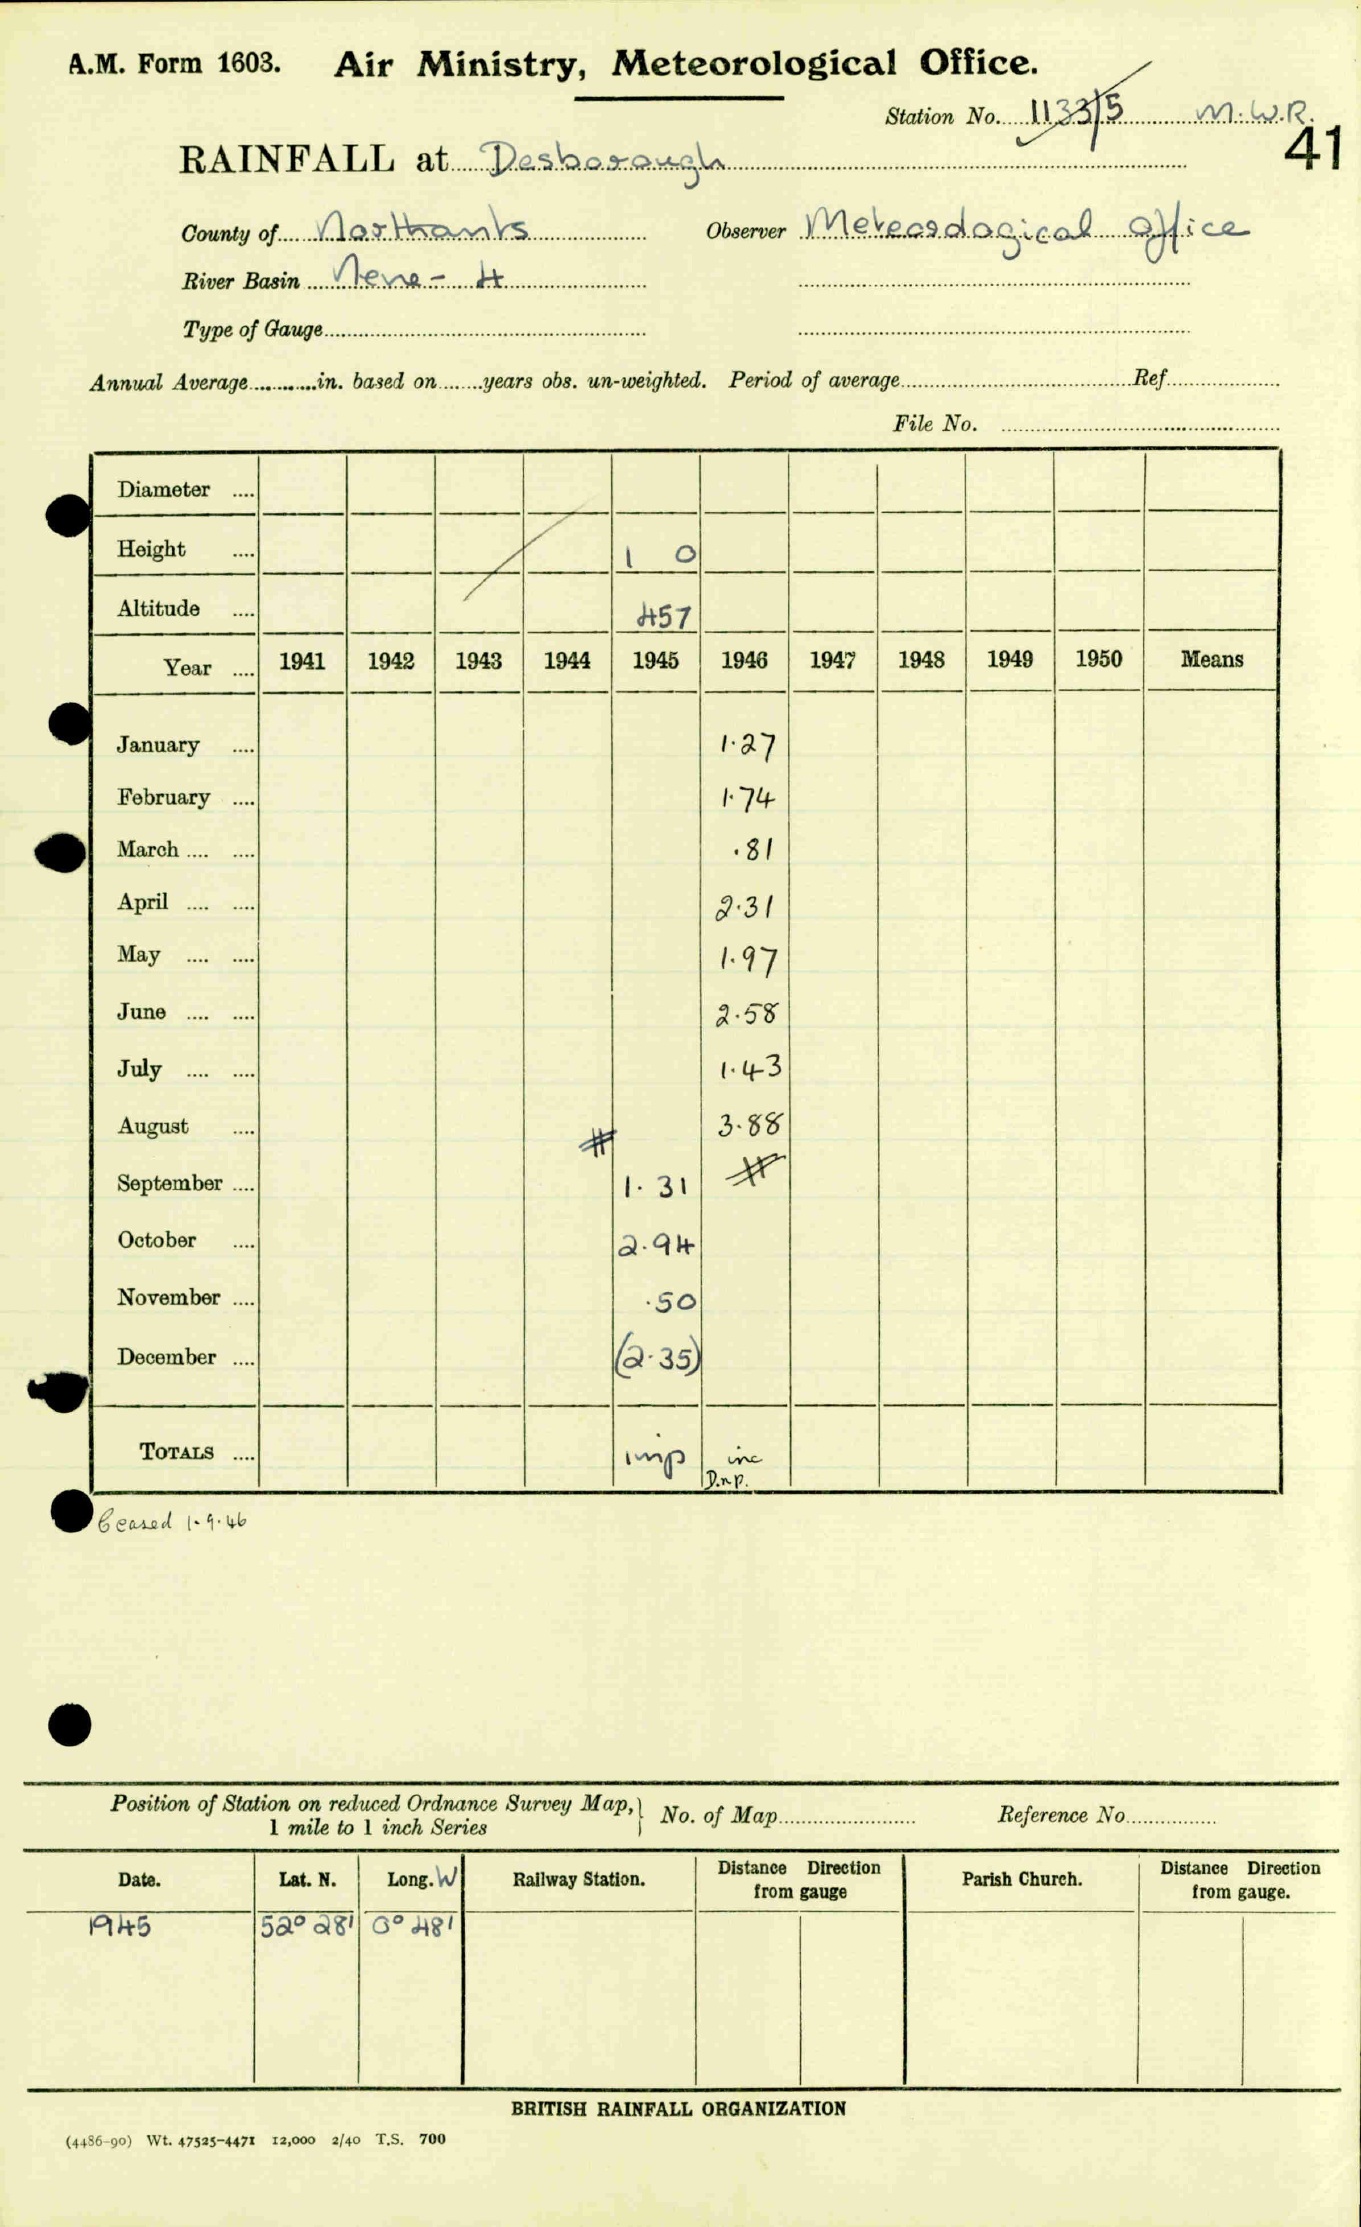 A.M. Form 1603. Air Ministry, Meteorological Office.
Station No. 1133/5 M.W.R.
41
RAINFALL at Desborough
County of Northants Observer Meteorological Office
River Basin Nene - 4
Type of Gauge
Annual Average in. based on years obs. un-weighted. Period of average Ref.
File No.
Diameter
Height 1 0
Altitude 457
Year 1941 1942 1943 1944 1945 1946 1947 1948 1949 1950 Means
January 1.27
February 1.74
March .81
April 2.31
May 1.97
June 2.58
July 1.43
August 3.88
September 1.31
October 2.94
November .50
December (2.35)
TOTALS imp inc
D.n.p.
Ceased 1.9.46
Position of Station on reduced Ordnance Survey Map, 1 mile to 1 inch Series No. of Map Reference No.
Date. Lat. N. Long. W Railway Station. Distance Direction from gauge Parish Church. Distance Direction from gauge.
1945 52° 28' 0° 48'
BRITISH RAINFALL ORGANIZATION
(4486-90) Wt. 47525-4471 12,000 2/40 T.S. 700